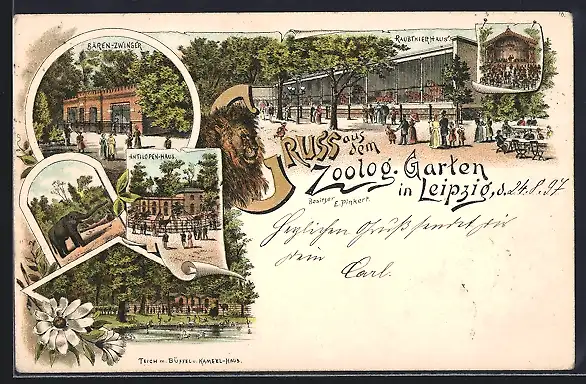 16.
BÄREN-ZWINGER
RAUBTHIERHAUS
ANTILOPEN-HAUS.
GRUSS aus dem
Zoolog. Garten
in Leipzig, d. 24.8.97
Besitzer E. Pinkert.
Herzlichen Gruß sendet dir
dein Carl.
TEICH M. BÜFFEL U. KAMEEL-HAUS.